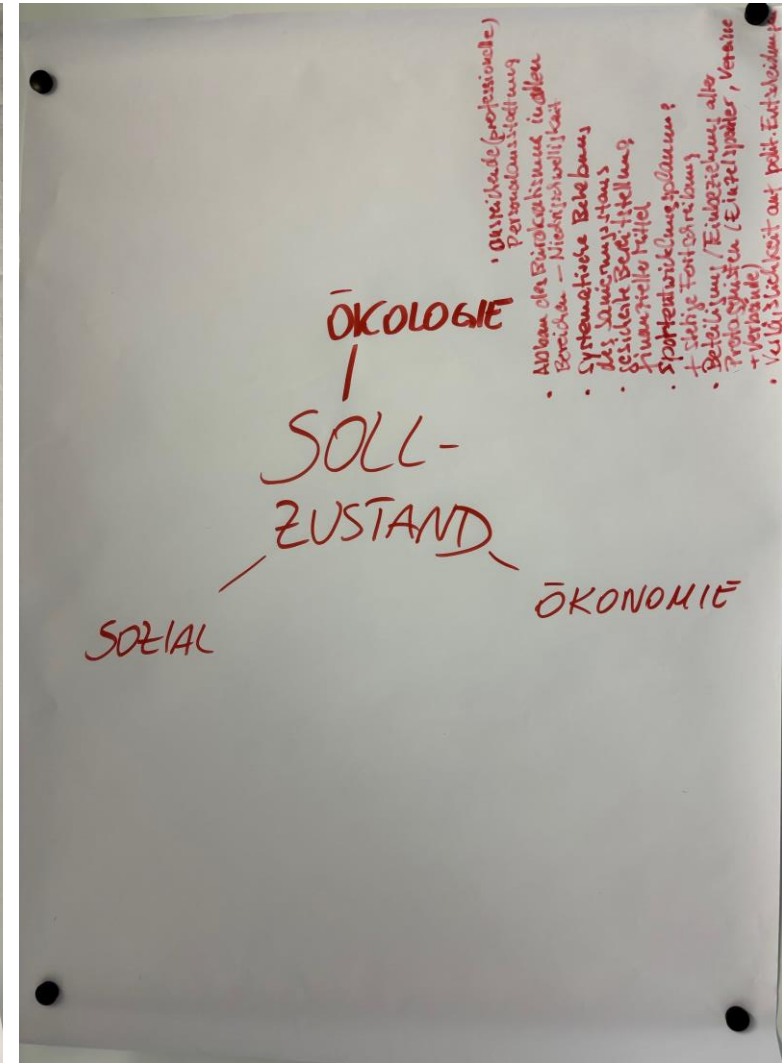 ÖKOLOGIE
SOLL-
ZUSTAND
SOZIAL
ÖKONOMIE
• ausreichende (professionelle)
Personalausstattung
• Abbau des Bürokratismus in allen
Bereichen – Niedrigschwelligkeit
• Systematische Behebung
des Sanierungsstaus
• gesicherte Bereitstellung
finanzieller Mittel
• Sportentwicklungsplanung
+ stetige Fortschreibung
• Beteiligung / Einbeziehung aller
Protagonisten (Einzelsportler, Vereine
+ Verbände)
• Verlässlichkeit auf polit. Entscheidungen